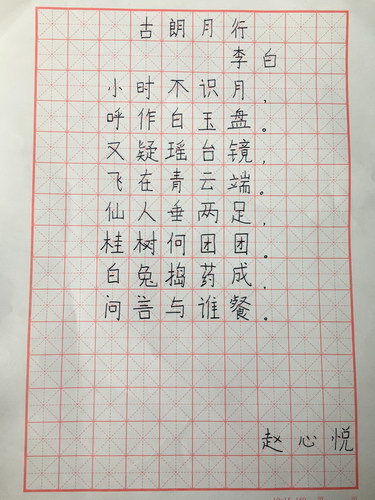 古朗月行
李白
小时不识月,
呼作白玉盘。
又疑瑶台镜,
飞在青云端。
仙人垂两足,
桂树何团团。
白兔捣药成,
问言与谁餐。
赵心悦